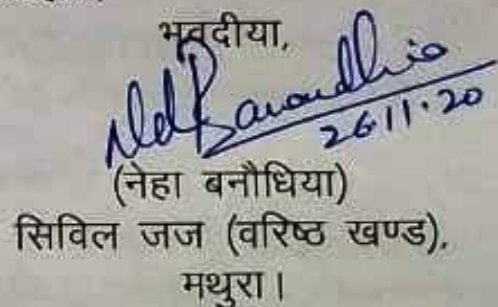 भवदीया,
26.11.20
(नेहा बनौधिया)
सिविल जज (वरिष्ठ खण्ड),
मथुरा।